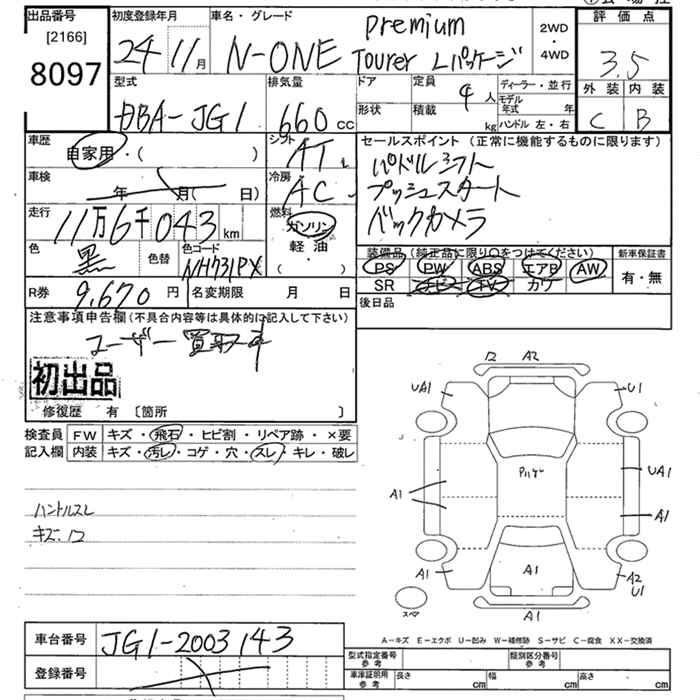 出品番号 初度登録年月 車名・グレード 評価点
[2166] 24 11月 N-ONE Premium Tourer Lパッケージ 2WD・4WD 3.5
8097
型式 排気量 ドア 定員 ディーラー・並行 外装 内装
DBA-JG1 660cc 4人 モデル年式 年 C B
形状 積載 kg ハンドル 左・右
車歴 シフト セールスポイント (正常に機能するものに限ります)
自家用・( ) AT パドルシフト
車検 冷房 プッシュスタート
年 月( 日) AC バックカメラ
走行 燃料
11万6千043km ガソリン
色 色替 色コード 軽油 装備品 (純正品に限り○をつけてください) 新車保証書
黒 NH731PX ・( ) PS PW ABS エアB AW 有・無
SR ナビ TV カワ
R券 9,670円 名変期限 月 日 後日品
注意事項申告欄(不具合内容等は具体的に記入して下さい)
ユーザー買取車
初出品
修復歴 有 〔箇所 〕
検査員 FW キズ・飛石・ヒビ割・リペア跡・×要
記入欄 内装 キズ・汚レ・コゲ・穴・スレ・キレ・破レ
ハンドルスレ
キズ.12
12 A2
UA1 U1
UA1
A1 A1
A1 A1 A2
U1
スペア A1
A-キズ E-エクボ U-凹み W-補修跡 S-サビ C-腐食 XX-交換済
車台番号 JG1-2003143
型式指定番号 参考 類別区分番号 参考
登録番号
車庫証明用 参考 長さ cm 幅 cm 高さ cm